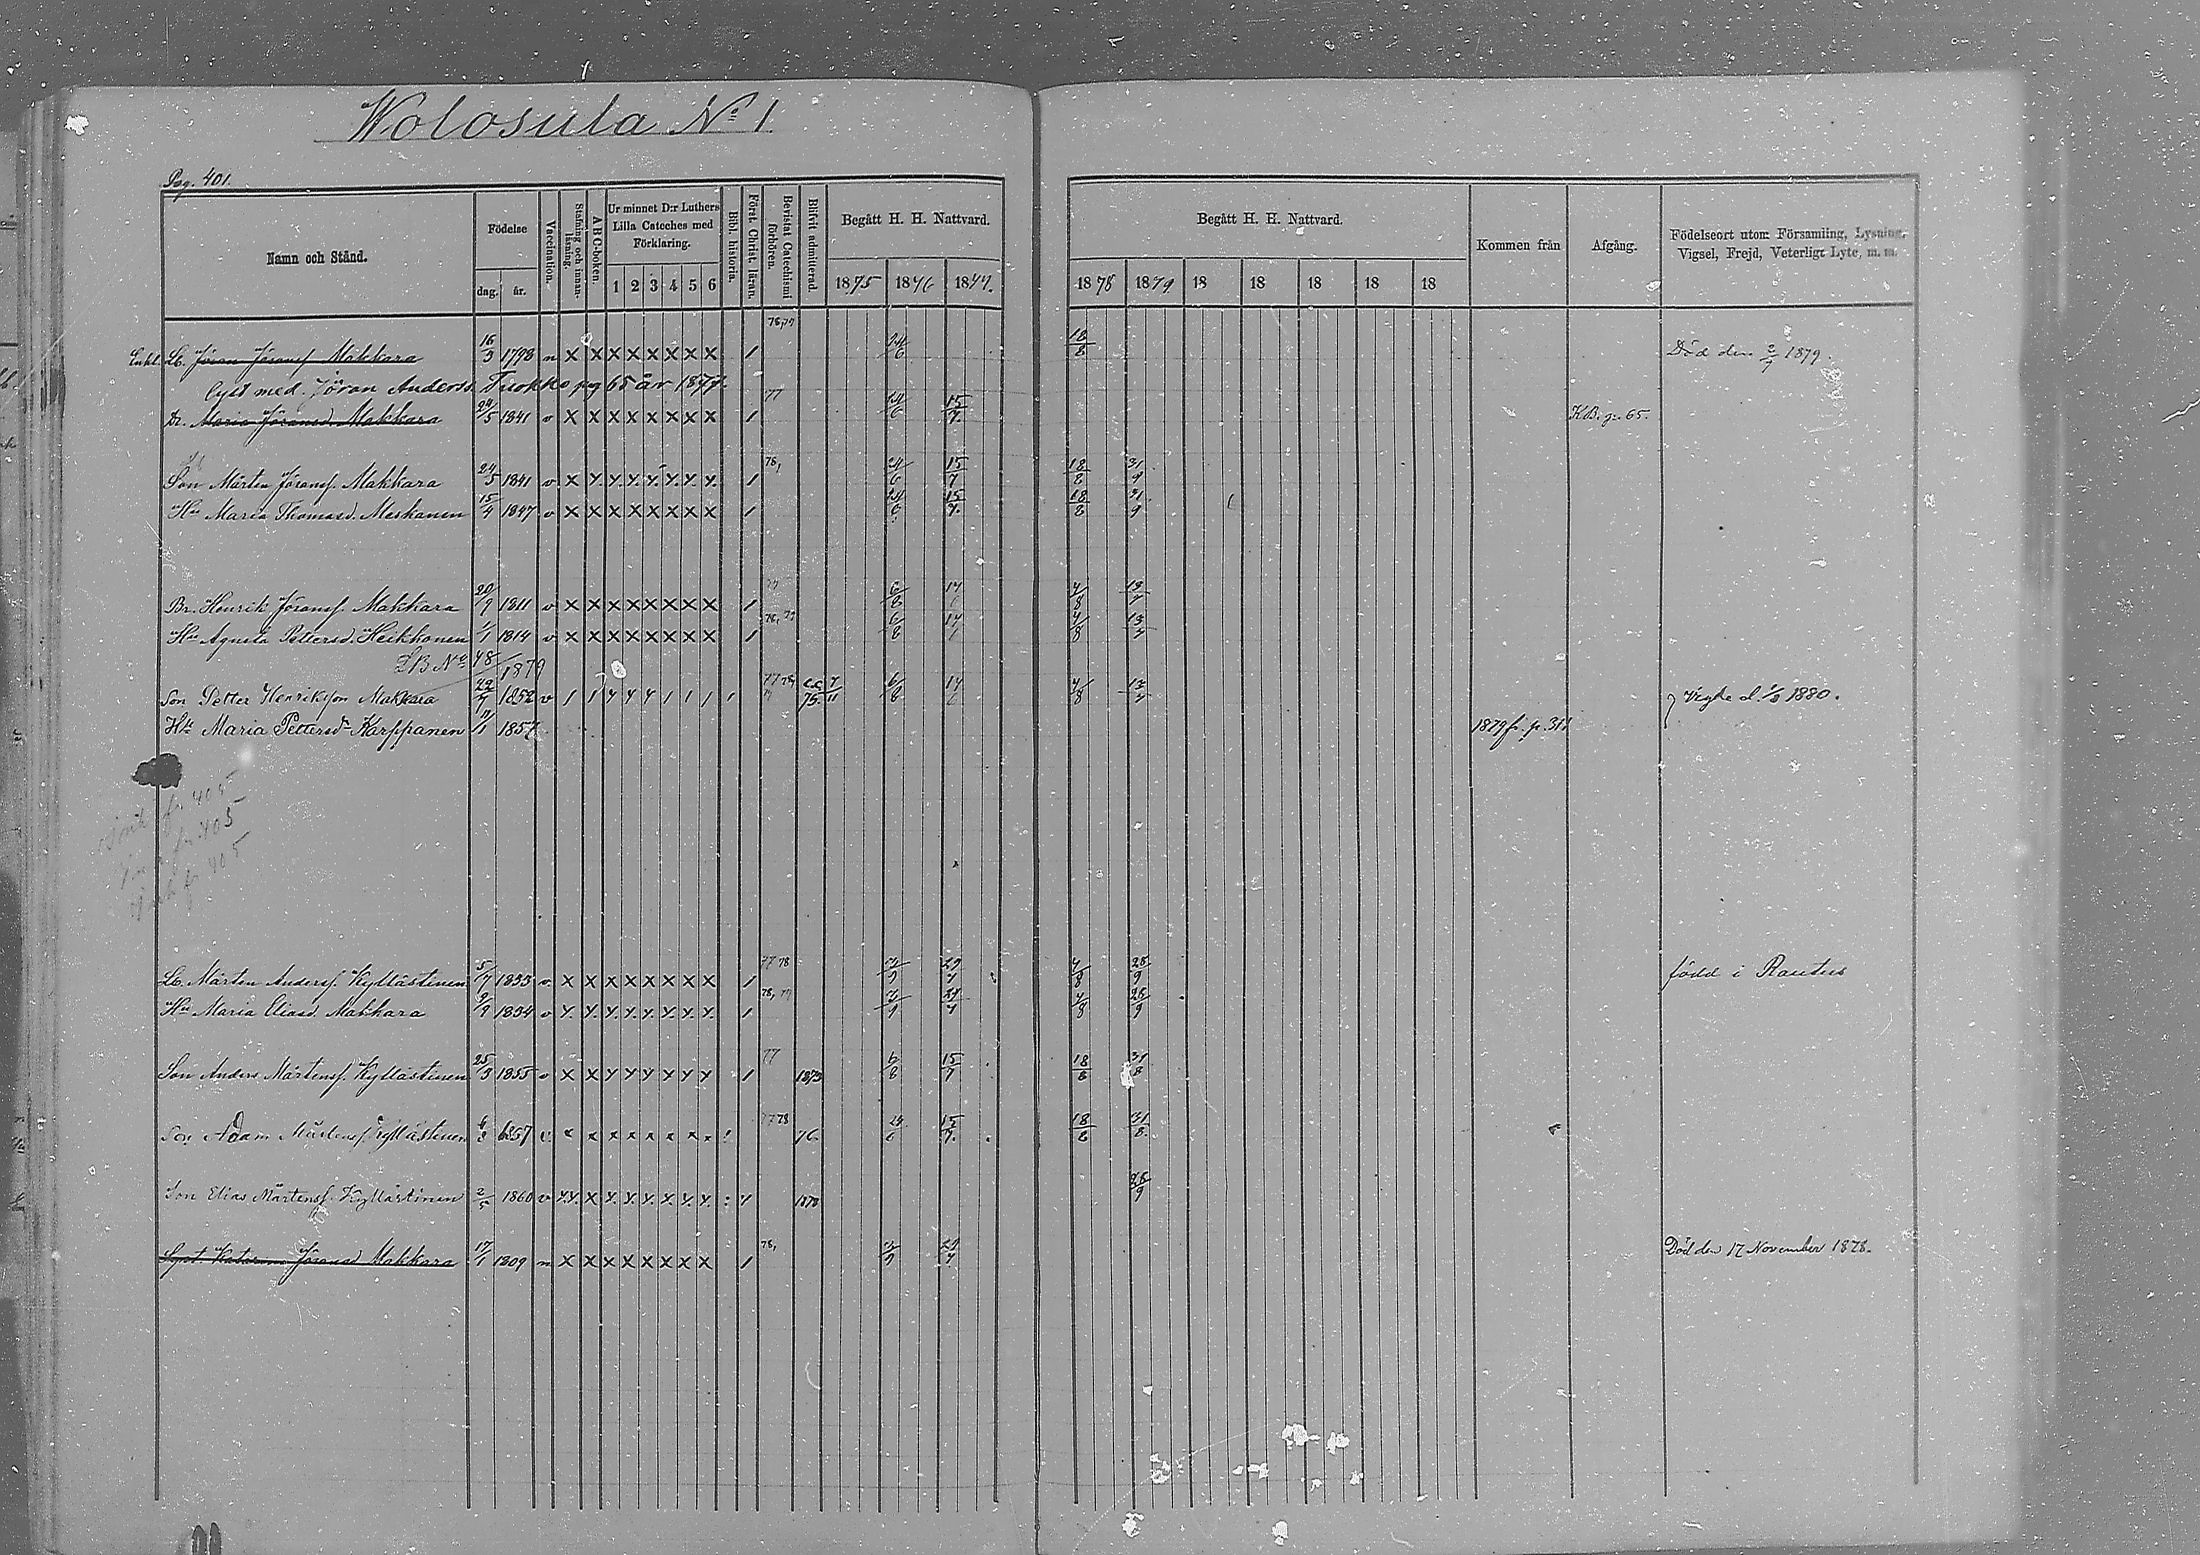 Wolosula No 1
Pag. 401.
Namn och Stånd.
Födelse
dag. år.
Vaccination.
Stafning och innanläsning.
ABC-boken.
Ur minnet D:r Luthers Lilla Cateches med Förklaring.
1 2 3 4 5 6
Bibl. historia.
Först. Christ. läran.
Bevistat Catechismi förhören.
Blifvit admitterad.
Begått H. H. Nattvard.
1875 1876 1877.
Begått H. H. Nattvard.
1878 1879 18 18 18 18 18
Kommen från
Afgång.
Födelseort utom Församling, Lysning, Vigsel, Frejd, Veterligt Lyte, m. m.
Enkl. Lb. Jöran Joransf. Makkara 16/3 1798 n × × × × × × × × / 78,79 24/6 18/8 Död den 2/7 1879.
Lyst med. Jöran Anderss. Tuokko pag 65 år 1877.
Dr. Maria Jöransd. Makkara 24/5 1841 v × × × × × × × × / 77 24/6 15/7. KB. p. 65.
Son Mårten Jöransf. Makkara 24/5 1841 v × / 78, 24/6 15/7 18/8 31/8
Hu Maria Thomasd. Meskanen 15/4 1847 v × × × × × × × × / 24/6 15/7. 18/8 31/8
Br. Henrik Jöransf. Makkara 20/9 1811 v × × × × × × × × / 77 6/8 17/6 4/8 13/7
Hu Agneta Pettersd. Heikkonen 1/1 1814 v × × × × × × × × / 78, 79 6/8 17/6 4/8 13/7
LB No 48/1879
Son Petter Henriksson Makkara 22/7 1852 v 77 78, 79 75. 6/8 17/6 4/8 13/7 Vigde d. 1/3 1880.
Hu Maria Pettersd. Karppanen 1/1 1857 1879 fr. p. 311
fr. 405
fr. 405
fr. 405
Lb. Mårten Andersf. Kyllästinen 5/7 1833 v. × × × × × × × × / 77 78 3/9 29/7 4/8 28/9 född i Rautus
Hu Maria Eliasd. Makkara 2/9 1834 v / 78, 79 3/9 29/7 4/8 28/9
Son Anders Mårtensf. Kyllästinen 25/3 1855 v × × / 77 1873 6/8 15/7 18/8 31/8
Son Adam Mårtensf. Kyllästinen 6/3 1857 v. × × × × × × × × 77 78 76. 24/6 15/7. 18/8 31/8.
Son Elias Mårtensf. Kyllästinen 2/5 1860 v 1878 28/9
Syst Katarina Jöransd Makkara 17/1 1809 n × × × × × × × × / 78, 3/9 29/7 Död den 17 November 1878.